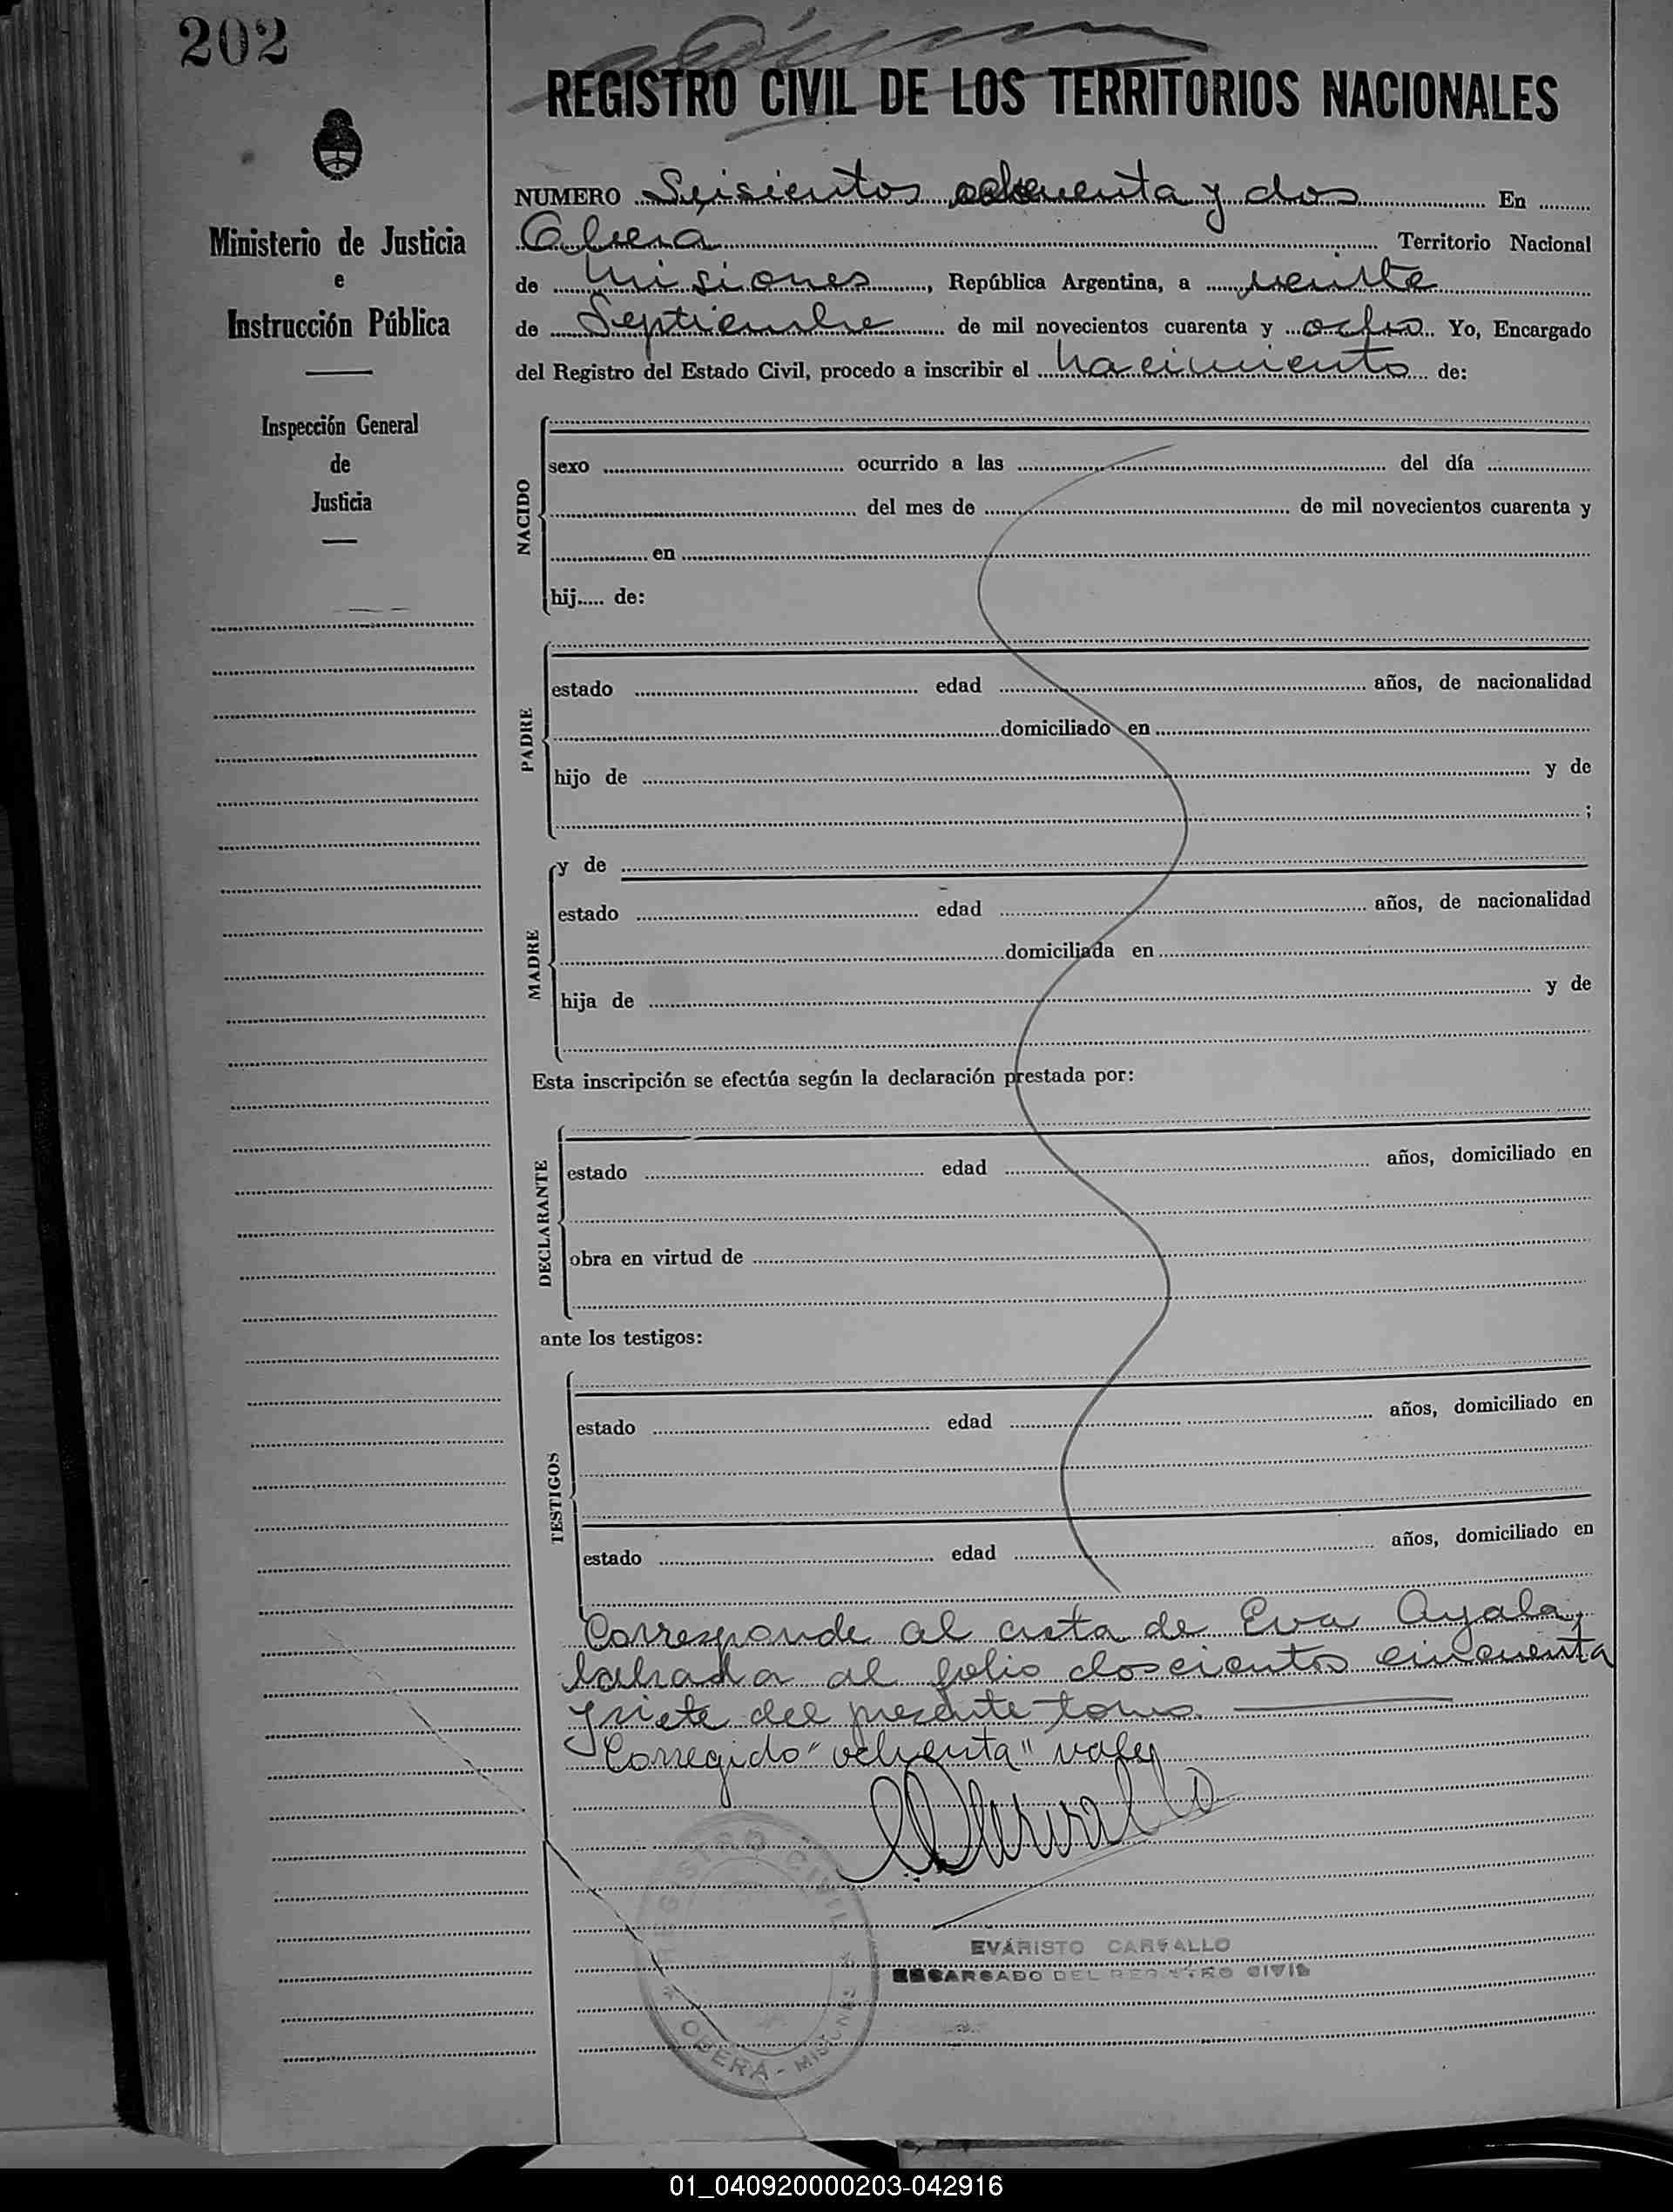 202
REGISTRO CIVIL DE LOS TERRITORIOS NACIONALES
Ministerio de Justicia
e
Instrucción Pública
Inspección General
de
Justicia
NUMERO Seisientos ochenta y dos En
Obera Territorio Nacional
de Misiones, República Argentina, a veinte
de Septiembre de mil novecientos cuarenta y ocho Yo, Encargado
del Registro del Estado Civil, procedo a inscribir el nacimiento de:
NACIDO
sexo ocurrido a las del día
del mes de de mil novecientos cuarenta y
en
hij..... de:
PADRE
estado edad años, de nacionalidad
domiciliado en
hijo de y de
;
MADRE
y de
estado edad años, de nacionalidad
domiciliada en
hija de y de
Esta inscripción se efectúa según la declaración prestada por:
DECLARANTE
estado edad años, domiciliado en
obra en virtud de
ante los testigos:
TESTIGOS
estado edad años, domiciliado en
estado edad años, domiciliado en
Corresponde al acta de Eva Ayala,
labrada al folio doscientos cincuenta
y siete del presente tomo.
Corregido "ochenta" vale
EVARISTO CARVALLO
ENCARGADO DEL REGISTRO CIVIL
REGISTRO CIVIL
* OBERA - MISIONES *
01_040920000203-042916